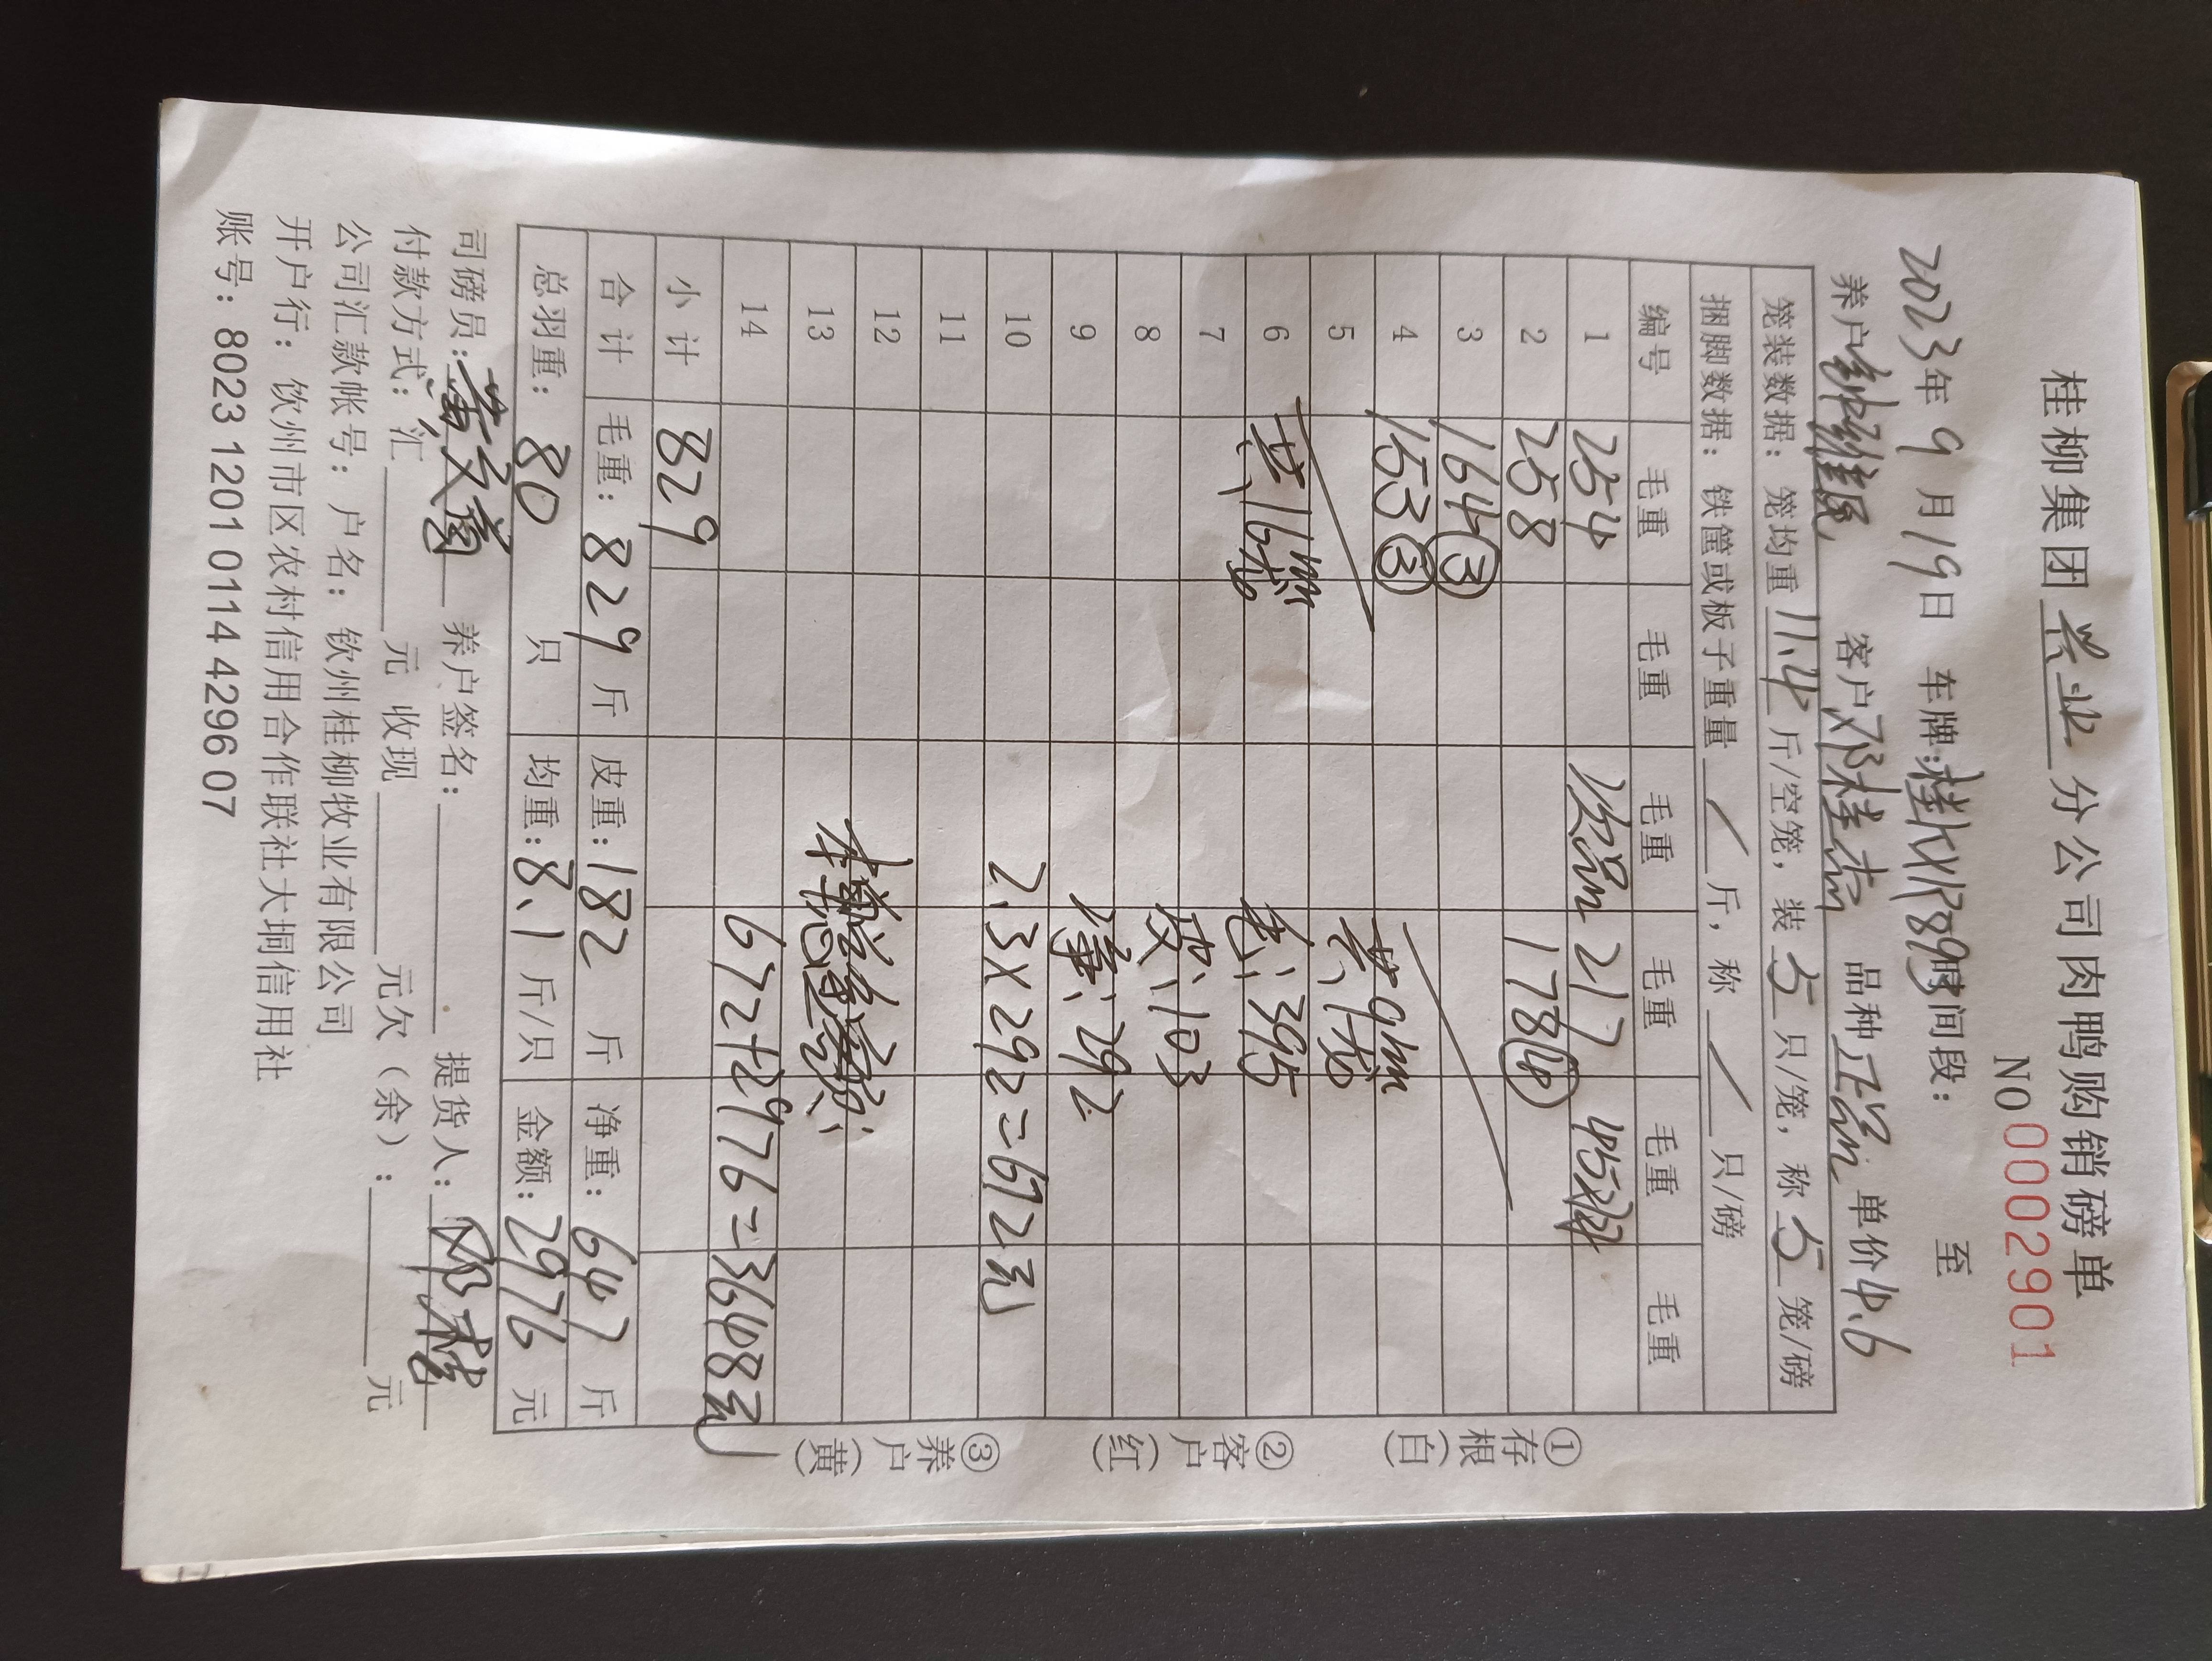 桂柳集团 兴业 分公司肉鸭购销磅单
NO 0002901
2023年 9 月 19 日 车牌:桂 893 时间段: 至
养户 维 客户 邓桂杰 品种 正品 单价 4.6
笼装数据: 笼均重 11.4 斤/空笼, 装 5 只/笼, 称 5 笼/磅
捆脚数据: 铁筐或板子重量 / 斤, 称 / 只/磅
编号 毛重 毛重 毛重 毛重 毛重 毛重
1 254 次品 217 45双
2 258 178 ④
3 164 ③
4 153 ③ 共9
5 共16 毛:395
6 皮:103
7 净:292
8
9
10 2.3×292=672元
11
12
13 本单总金额:
14 672+2976=3648元
小计 829
合计 毛重: 829 斤 皮重: 182 斤 净重: 647 斤
总羽重: 80 只 均重: 8.1 斤/只 金额: 2976 元
司磅员: 养户签名: 提货人: 邓桂
付款方式: 汇 元 收现 元欠(余): 元
公司汇款帐号: 户名: 钦州桂柳牧业有限公司
开户行: 钦州市区农村信用合作联社大垌信用社
账号: 8023 1201 0114 4296 07
①存根(白)
②客户(红)
③养户(黄)